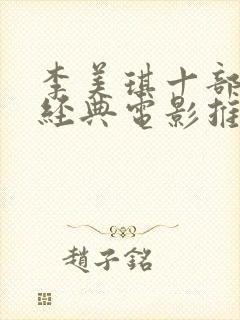 李美琪十部
經典電影推
趙子銘